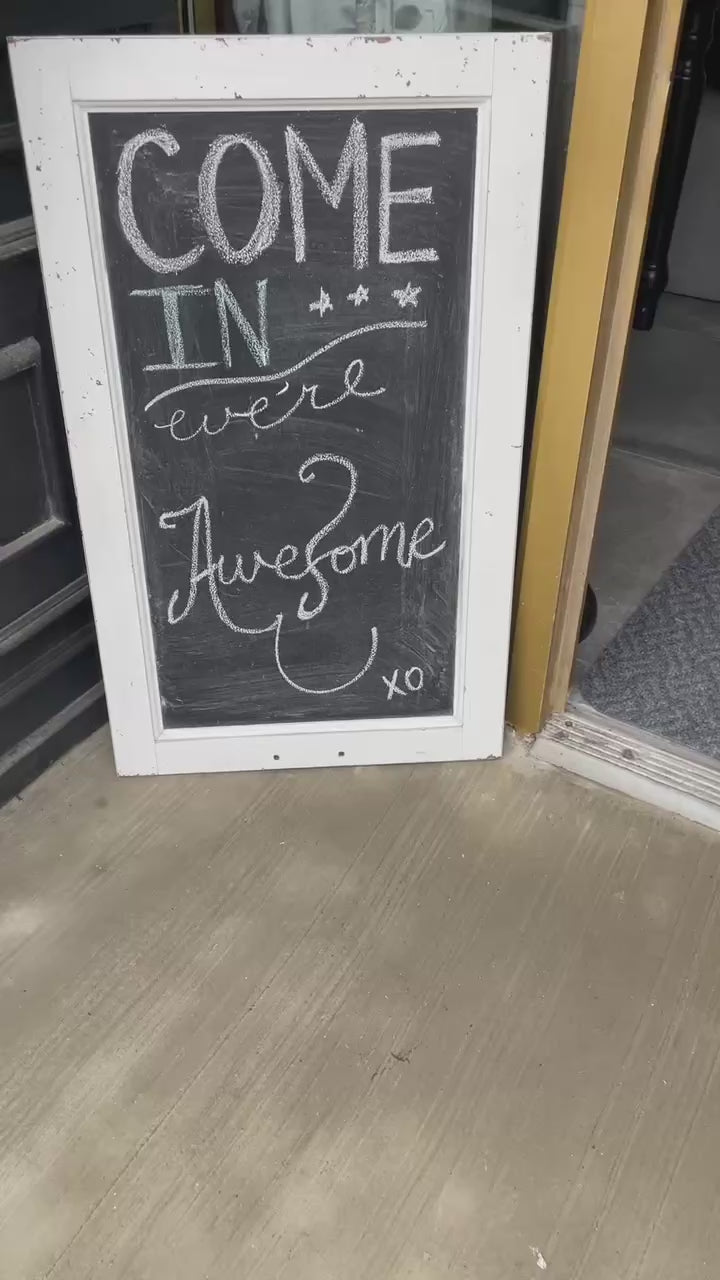 COME
IN ***
we're
Awesome
XO